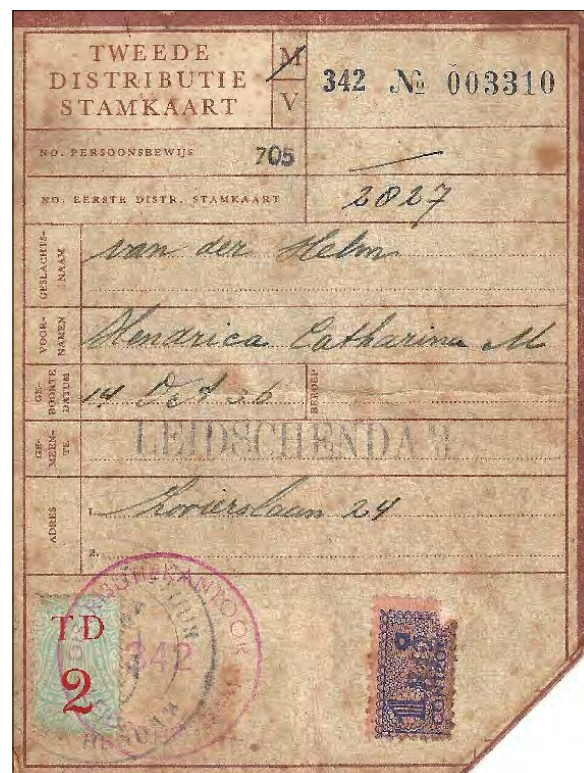 TWEEDE
DISTRIBUTIE
STAMKAART
M
V
342 № 003310
NO. PERSOONSBEWIJS 705
NO. EERSTE DISTR. STAMKAART 2827
GESLACHTS-
NAAM
van der Helm
VOOR-
NAMEN
Hendrica Catharina M
GE-
BOORTE
DATUM
14 Oct 36
BEROEP
GE-
MEEN-
TE
LEIDSCHENDAM
ADRES
1. 24
2.
TD
2
342